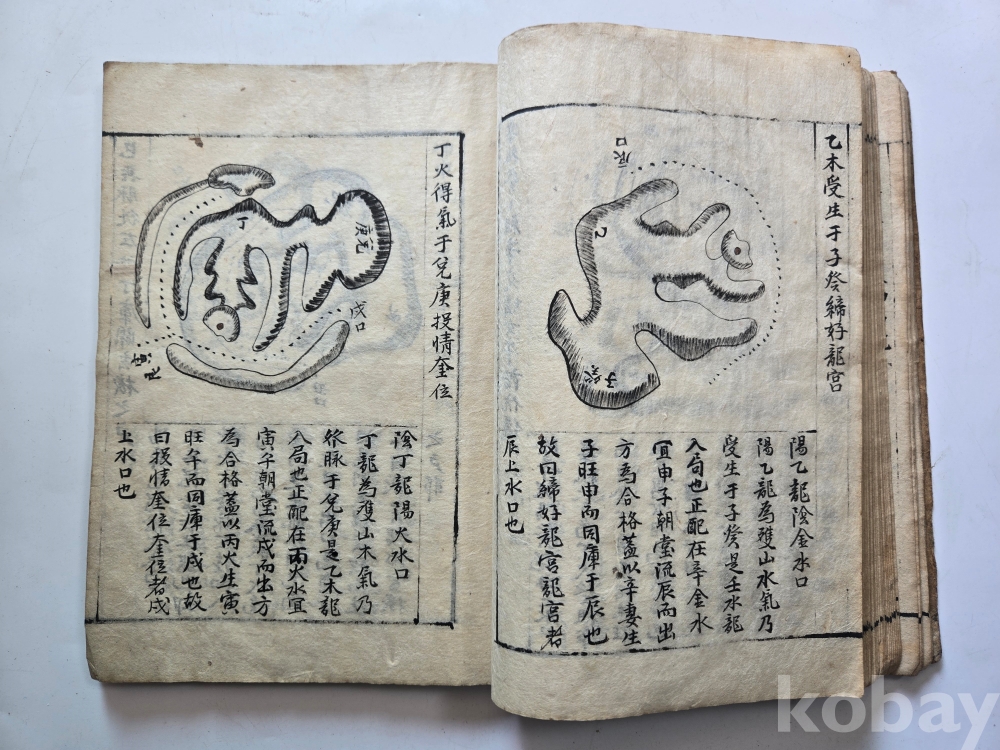 乙木受生于子癸締好龍宮
辰口
乙
子癸
陽乙龍陰金水口
陽乙龍為雙山水氣乃
受生于子癸是壬水龍
入局也正配在辛金水
宜申子朝堂流辰而出
方為合格盖以辛妻生
子旺申而同庫于辰也
故曰締好龍宮龍宮者
辰上水口也
丁火得氣于兌庚投情奎位
庚兌
丁
戌口
陰丁龍陽火水口
丁龍為雙山木氣乃
脉于兌庚是乙木龍
入局也正配在丙火水宜
寅午朝堂流戌而出方
為合格盖以丙火生寅
旺午而同庫于戌也故
曰投情奎位奎位者戌
上水口也
kobay